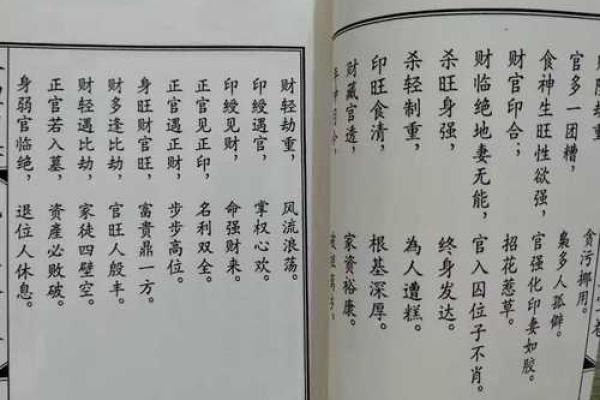 劫重 贪污挪用。
官多一团糟， 枭多人孤僻。
食神生旺性欲强， 官强化印妻如胶。
财官印合； 招花惹草。
财临绝地妻无能， 官入囚位子不肖。
杀旺身强， 终身发达。
杀轻制重， 為人遭糕。
印旺食清， 根基深厚。
财藏官透， 家资裕康。
财轻劫重， 风流浪荡。
印綬遇官， 掌权心欢。
印綬见财， 命强财来。
正官见正印， 名利双全。
正官遇正财， 步步高位。
身旺财官旺， 富贵鼎一方。
财多逢比劫， 官旺人殷丰。
财轻遇比劫， 家徒四壁空。
正官若入墓， 資產必败破。
身弱官临绝， 退位人休息。